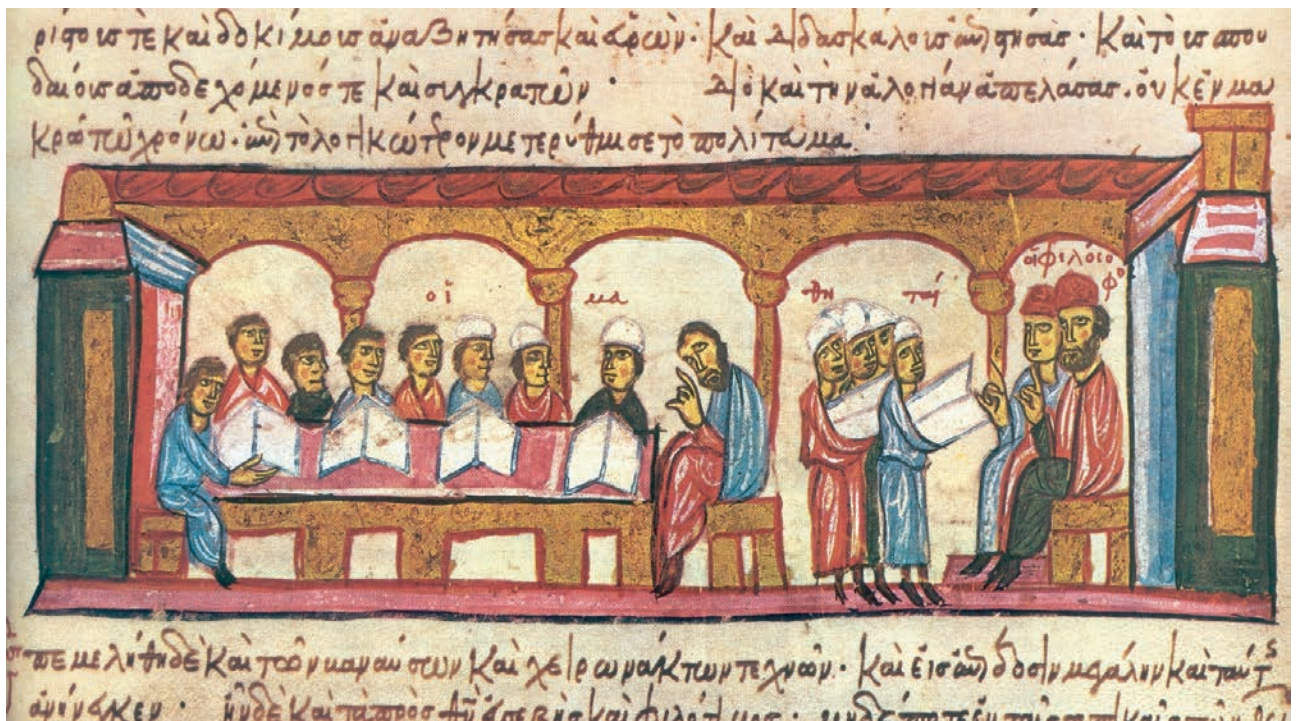 ρίτοις τε καὶ δοκίμοις ἀναζητήσας καὶ εὑρών· καὶ διδασκάλοις στήσας· καὶ τοις σπου
δαίοις ἀποδεχόμενός τε καὶ συγκρατῶν· Διὸ καὶ τὴν ἀλογίαν ἀπελάσας. οὐκ ἐν μα
κρῷ τῷ χρόνω. ἐπὶ τὸ λογικώτερον μετερύθμισε τὸ πολίτευμα.
οἱ μαθηταί
ὁ φιλόσοφο
πεμελήθη δὲ καὶ τῶν βαναύσων καὶ χειρωνάκτων τεχνῶν· καὶ εἰς ἐπίδοσιν μεγάλην καὶ ταύτς
ἀνήνεγκεν· ἦν δὲ καὶ τὰ πρὸς εὐσεβὴς καὶ φιλότιμος·